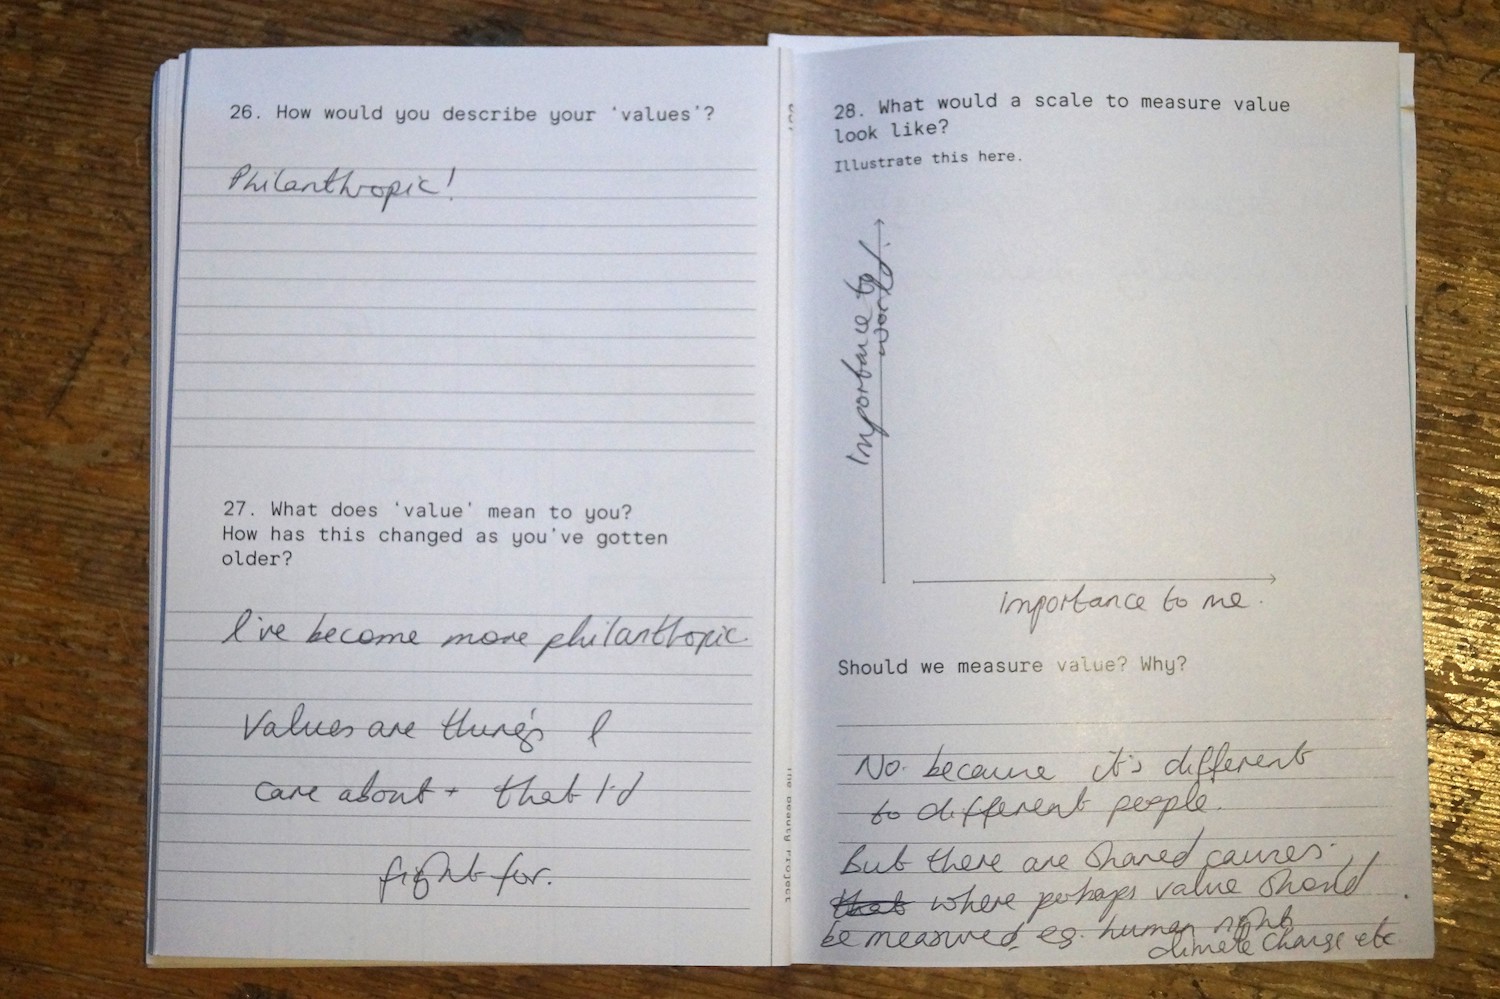 26. How would you describe your 'values'?
Philanthropic!
27. What does 'value' mean to you?
How has this changed as you've gotten
older?
I've become more philanthropic.
Values are things I
care about + that I'd
fight for.
28. What would a scale to measure value
look like?
Illustrate this here.
Importance to
world.
importance to me.
Should we measure value? Why?
No. because it's different
to different people.
But there are shared causes.
that where perhaps value should
be measured, eg. human rights
climate change etc